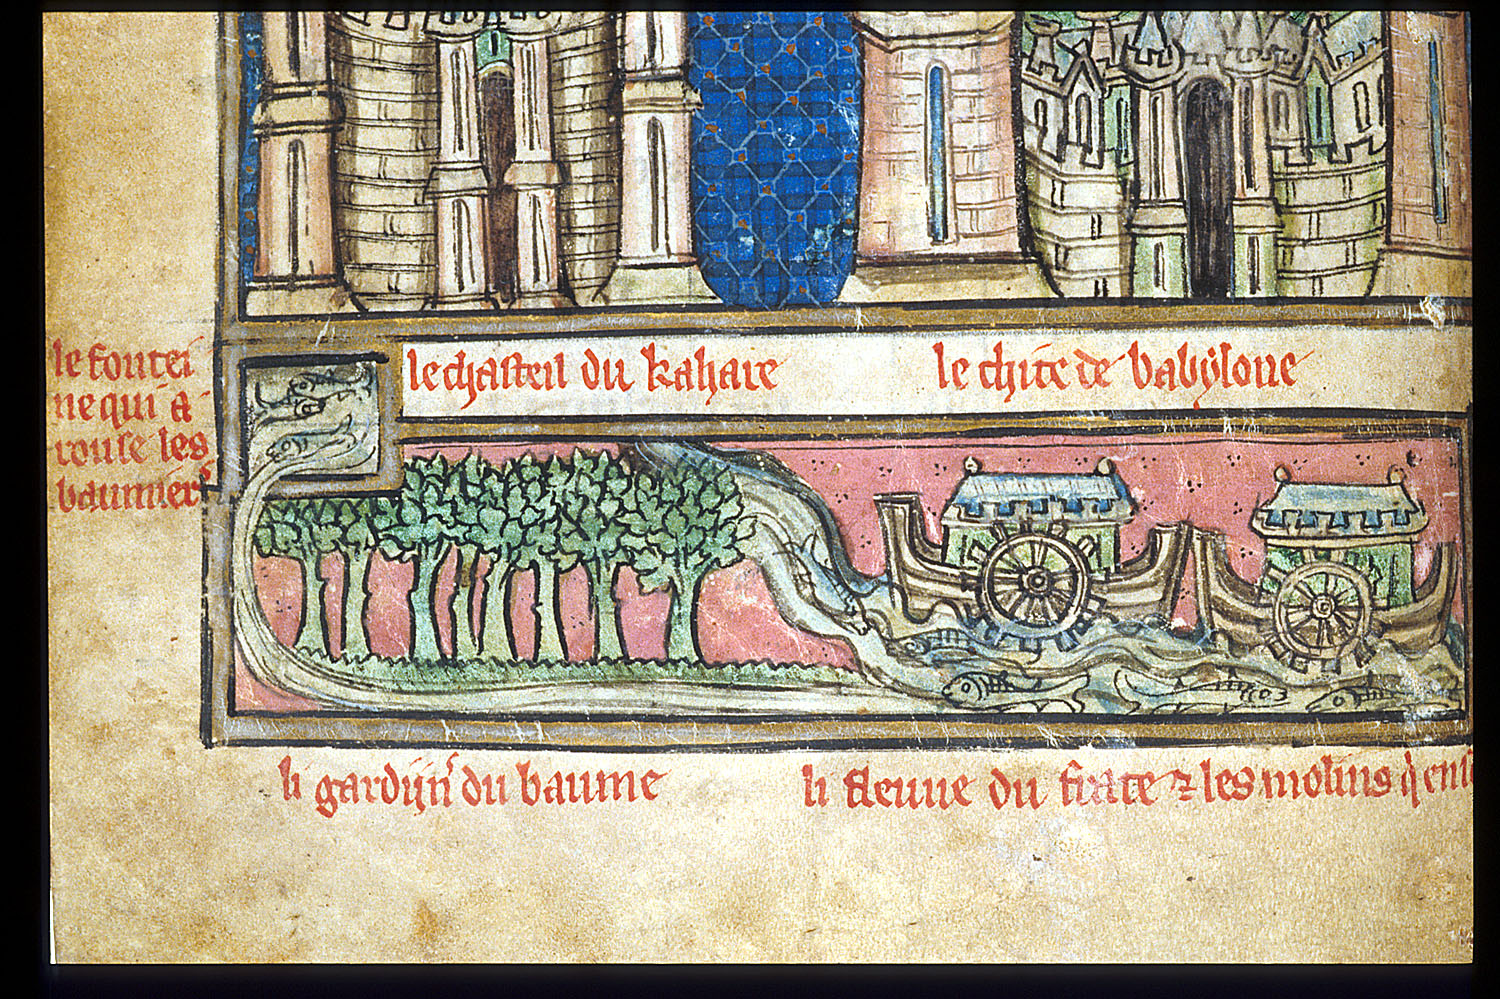 le fontei
ne qui a
rouse les
baumiers
le chasteil du kahare
le chite de babylone
li gardijn du baume
li fleuue du frate ⁊ les molins q̇